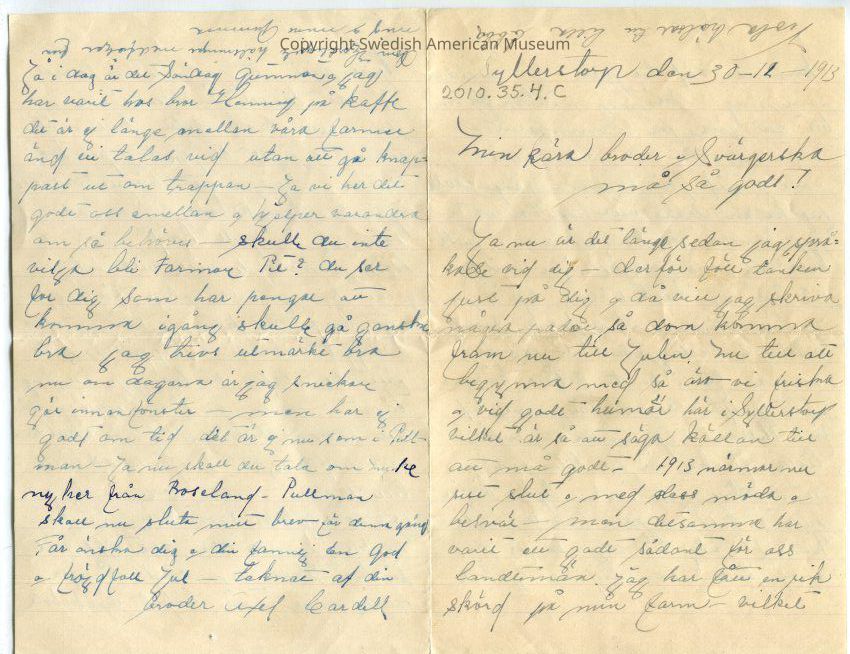 Copyright Swedish American Museum
Syllerstorp den 30-12-1913
2010.35.4.C
Min kära broder & Svägerska
må så godt!
Ja nu är det länge sedan jag språ-
kade vid dig - därför föll tanken
just på dig & då vill jag skriva
några rader så dom komma
fram nu till Julen. Nu till att
begynna med så äro vi friska
& vid godt humör här i Syllerstorp
vilket är så att säga källan till
att må godt - 1913 närmar nu
sitt slut & med dess möda &
besvär - men detsamma har
varit ett godt sådant för oss
landtmän. Jag har fått en rik
skörd på min farm - vilket
Ja i dag är det Söndag Gumman & jag
har varit hos bror Henning på kaffe
det är ej länge mellan våra farmar
än vi talas vid utan att gå knap-
past ut om trappan - Ja vi har det
godt oss emellan & hjelper varandra
om så behöves - skulle du inte
vilja bli Farmare du ser
for dig som har pengar att
komma igång skulle gå ganska
bra jag trivs utmärkt bra
nu om dagarna är jag snickare
gör innanfönster - men har ej
godt om tid det är ej nu som i Pull-
man - Ja nu skall du tala om
nyheter från Roseland - Pullman
skall nu sluta mitt brev för denna gång
Får önska dig & din familj en God
& fröjdfull Jul - tecknat af din
broder Axel Cardell